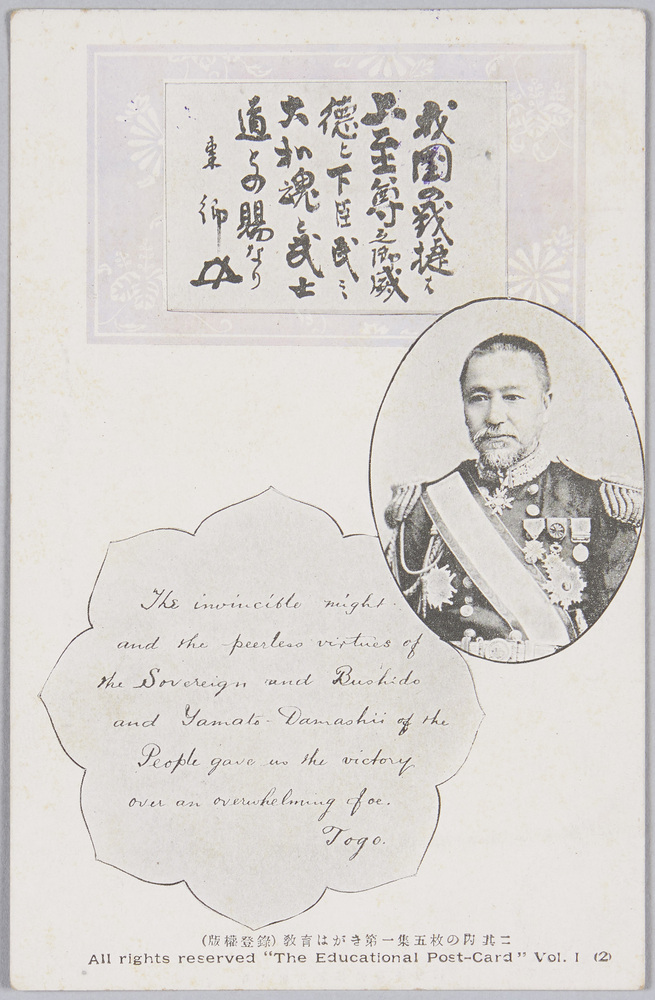 我国の戦捷は
上至尊之御威
徳と下臣民ミ
大和魂と武士
道との賜なり
東郷
The invincible might
and the peerless virtues of
the Sovereign and Bushido
and Yamato-Damashii of the
People gave us the victory
over an overwhelming foe.
Togo.
(版權登錄) 教育はがき第一集五枚の内其二
All rights reserved "The Educational Post-Card" Vol. I (2)